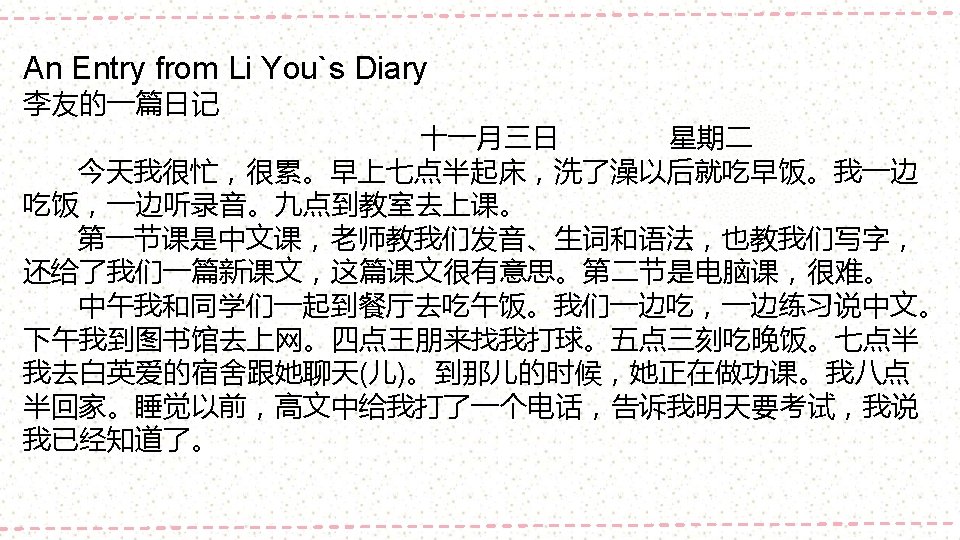 An Entry from Li You`s Diary
李友的一篇日记
十一月三日 星期二
今天我很忙，很累。早上七点半起床，洗了澡以后就吃早饭。我一边
吃饭，一边听录音。九点到教室去上课。
第一节课是中文课，老师教我们发音、生词和语法，也教我们写字，
还给了我们一篇新课文，这篇课文很有意思。第二节是电脑课，很难。
中午我和同学们一起到餐厅去吃午饭。我们一边吃，一边练习说中文。
下午我到图书馆去上网。四点王朋来找我打球。五点三刻吃晚饭。七点半
我去白英爱的宿舍跟她聊天(儿)。到那儿的时候，她正在做功课。我八点
半回家。睡觉以前，高文中给我打了一个电话，告诉我明天要考试，我说
我已经知道了。